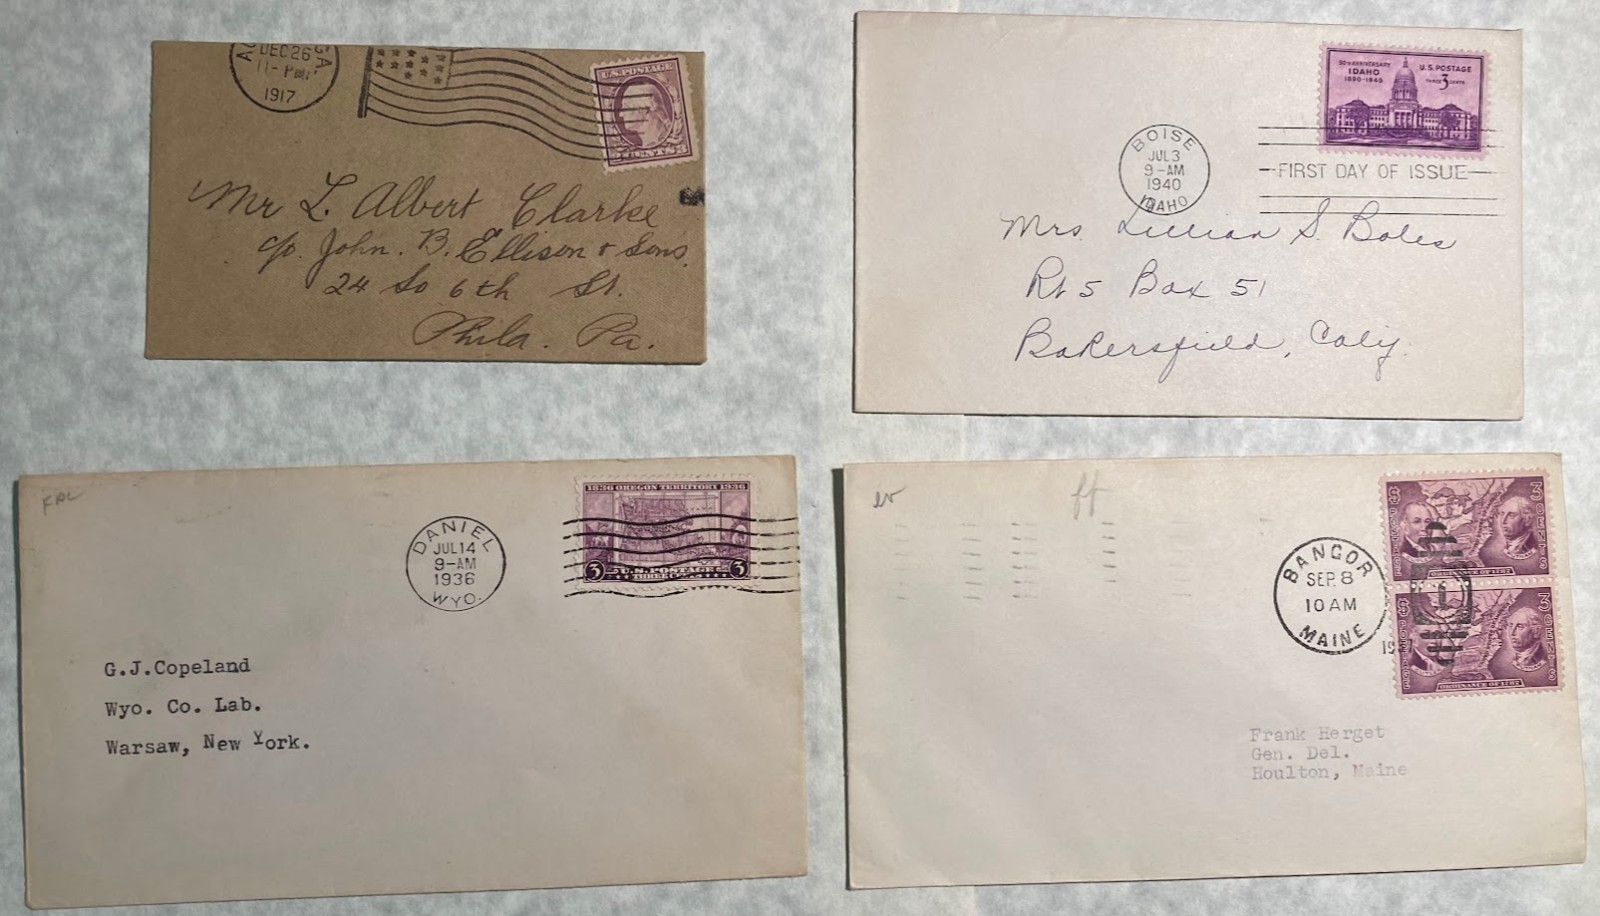 DEC 26
11-PM
1917
U.S. POSTAGE
3 CENTS 3
Mr L. Albert Clarke
c/o. John. B. Ellison & Sons.
24 So 6th St.
Phila. Pa.
50TH ANNIVERSARY
IDAHO
1890-1940
U.S. POSTAGE
THREE 3 CENTS
BOISE
JUL 3
9-AM
1940
IDAHO
FIRST DAY OF ISSUE
Mrs. Lillian S. Boles
Rt 5 Box 51
Bakersfield, Calif.
1836 OREGON TERRITORY 1936
3 U.S. POSTAGE 3
THREE CENTS
DANIEL
JUL 14
9-AM
1936
WYO.
G.J.Copeland
Wyo. Co. Lab.
Warsaw, New York.
ff
BANGOR
SEP 8
10 AM
MAINE
19
3 CENTS 3
ORDINANCE OF 1787
3 CENTS 3
ORDINANCE OF 1787
Frank Herget
Gen. Del.
Houlton, Maine